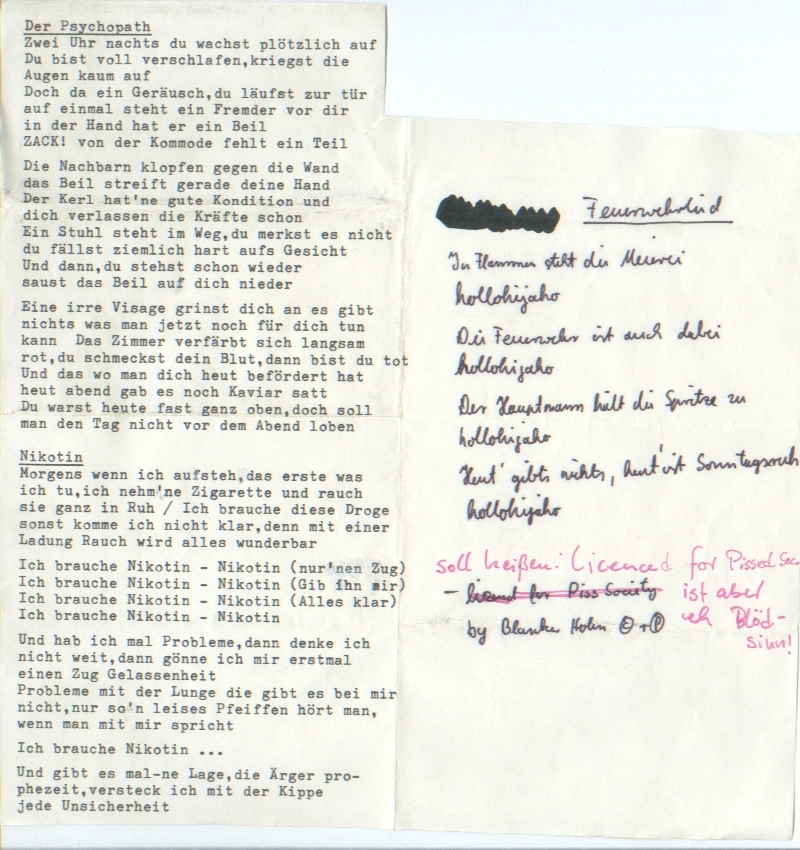 Der Psychopath
Zwei Uhr nachts du wachst plötzlich auf
Du bist voll verschlafen,kriegst die
Augen kaum auf
Doch da ein Geräusch,du läufst zur tür
auf einmal steht ein Fremder vor dir
in der Hand hat er ein Beil
ZACK! von der Kommode fehlt ein Teil
Die Nachbarn klopfen gegen die Wand
das Beil streift gerade deine Hand
Der Kerl hat'ne gute Kondition und
dich verlassen die Kräfte schon
Ein Stuhl steht im Weg,du merkst es nicht
du fällst ziemlich hart aufs Gesicht
Und dann,du stehst schon wieder
saust das Beil auf dich nieder
Eine irre Visage grinst dich an es gibt
nichts was man jetzt noch für dich tun
kann  Das Zimmer verfärbt sich langsam
rot,du schmeckst dein Blut,dann bist du tot
Und das wo man dich heut befördert hat
heut abend gab es noch Kaviar satt
Du warst heute fast ganz oben,doch soll
man den Tag nicht vor dem Abend loben
Nikotin
Morgens wenn ich aufsteh,das erste was
ich tu,ich nehm'ne Zigarette und rauch
sie ganz in Ruh / Ich brauche diese Droge
sonst komme ich nicht klar,denn mit einer
Ladung Rauch wird alles wunderbar
Ich brauche Nikotin - Nikotin (nur'nen Zug)
Ich brauche Nikotin - Nikotin (Gib ihn mir)
Ich brauche Nikotin - Nikotin (Alles klar)
Ich brauche Nikotin - Nikotin
Und hab ich mal Probleme,dann denke ich
nicht weit,dann gönne ich mir erstmal
einen Zug Gelassenheit
Probleme mit der Lunge die gibt es bei mir
nicht,nur so'n leises Pfeiffen hört man,
wenn man mit mir spricht
Ich brauche Nikotin ...
Und gibt es mal-ne Lage,die Ärger pro-
phezeit,versteck ich mit der Kippe
jede Unsicherheit
Feuerwehrlied
In Flammen steht die Meierei
hollohijaho
Die Feuerwehr ist auch dabei
hollohijaho
Der Hauptmann hält die Spritze zu
hollohijaho
Heut' gibts nichts, heut' ist Sonntagsruh
hollohijaho
soll heißen: Licenced for Pissed Soc
- licenced for Piss Society ist aber
by Blanker Hohn eh Blöd-
sinn!